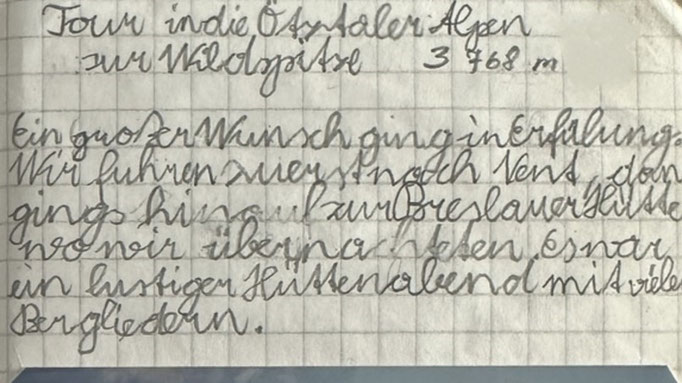 Tour in die Ötztaler Alpen
zur Wildspitze 3 768 m
Ein großer Wunsch ging in Erfüllung.
Wir fuhren zuerst nach Vent, dan
gings hinauf zur Breslauer Hütte
wo wir übernachteten. Es war
ein lustiger Hüttenabend mit viele
Bergliedern.